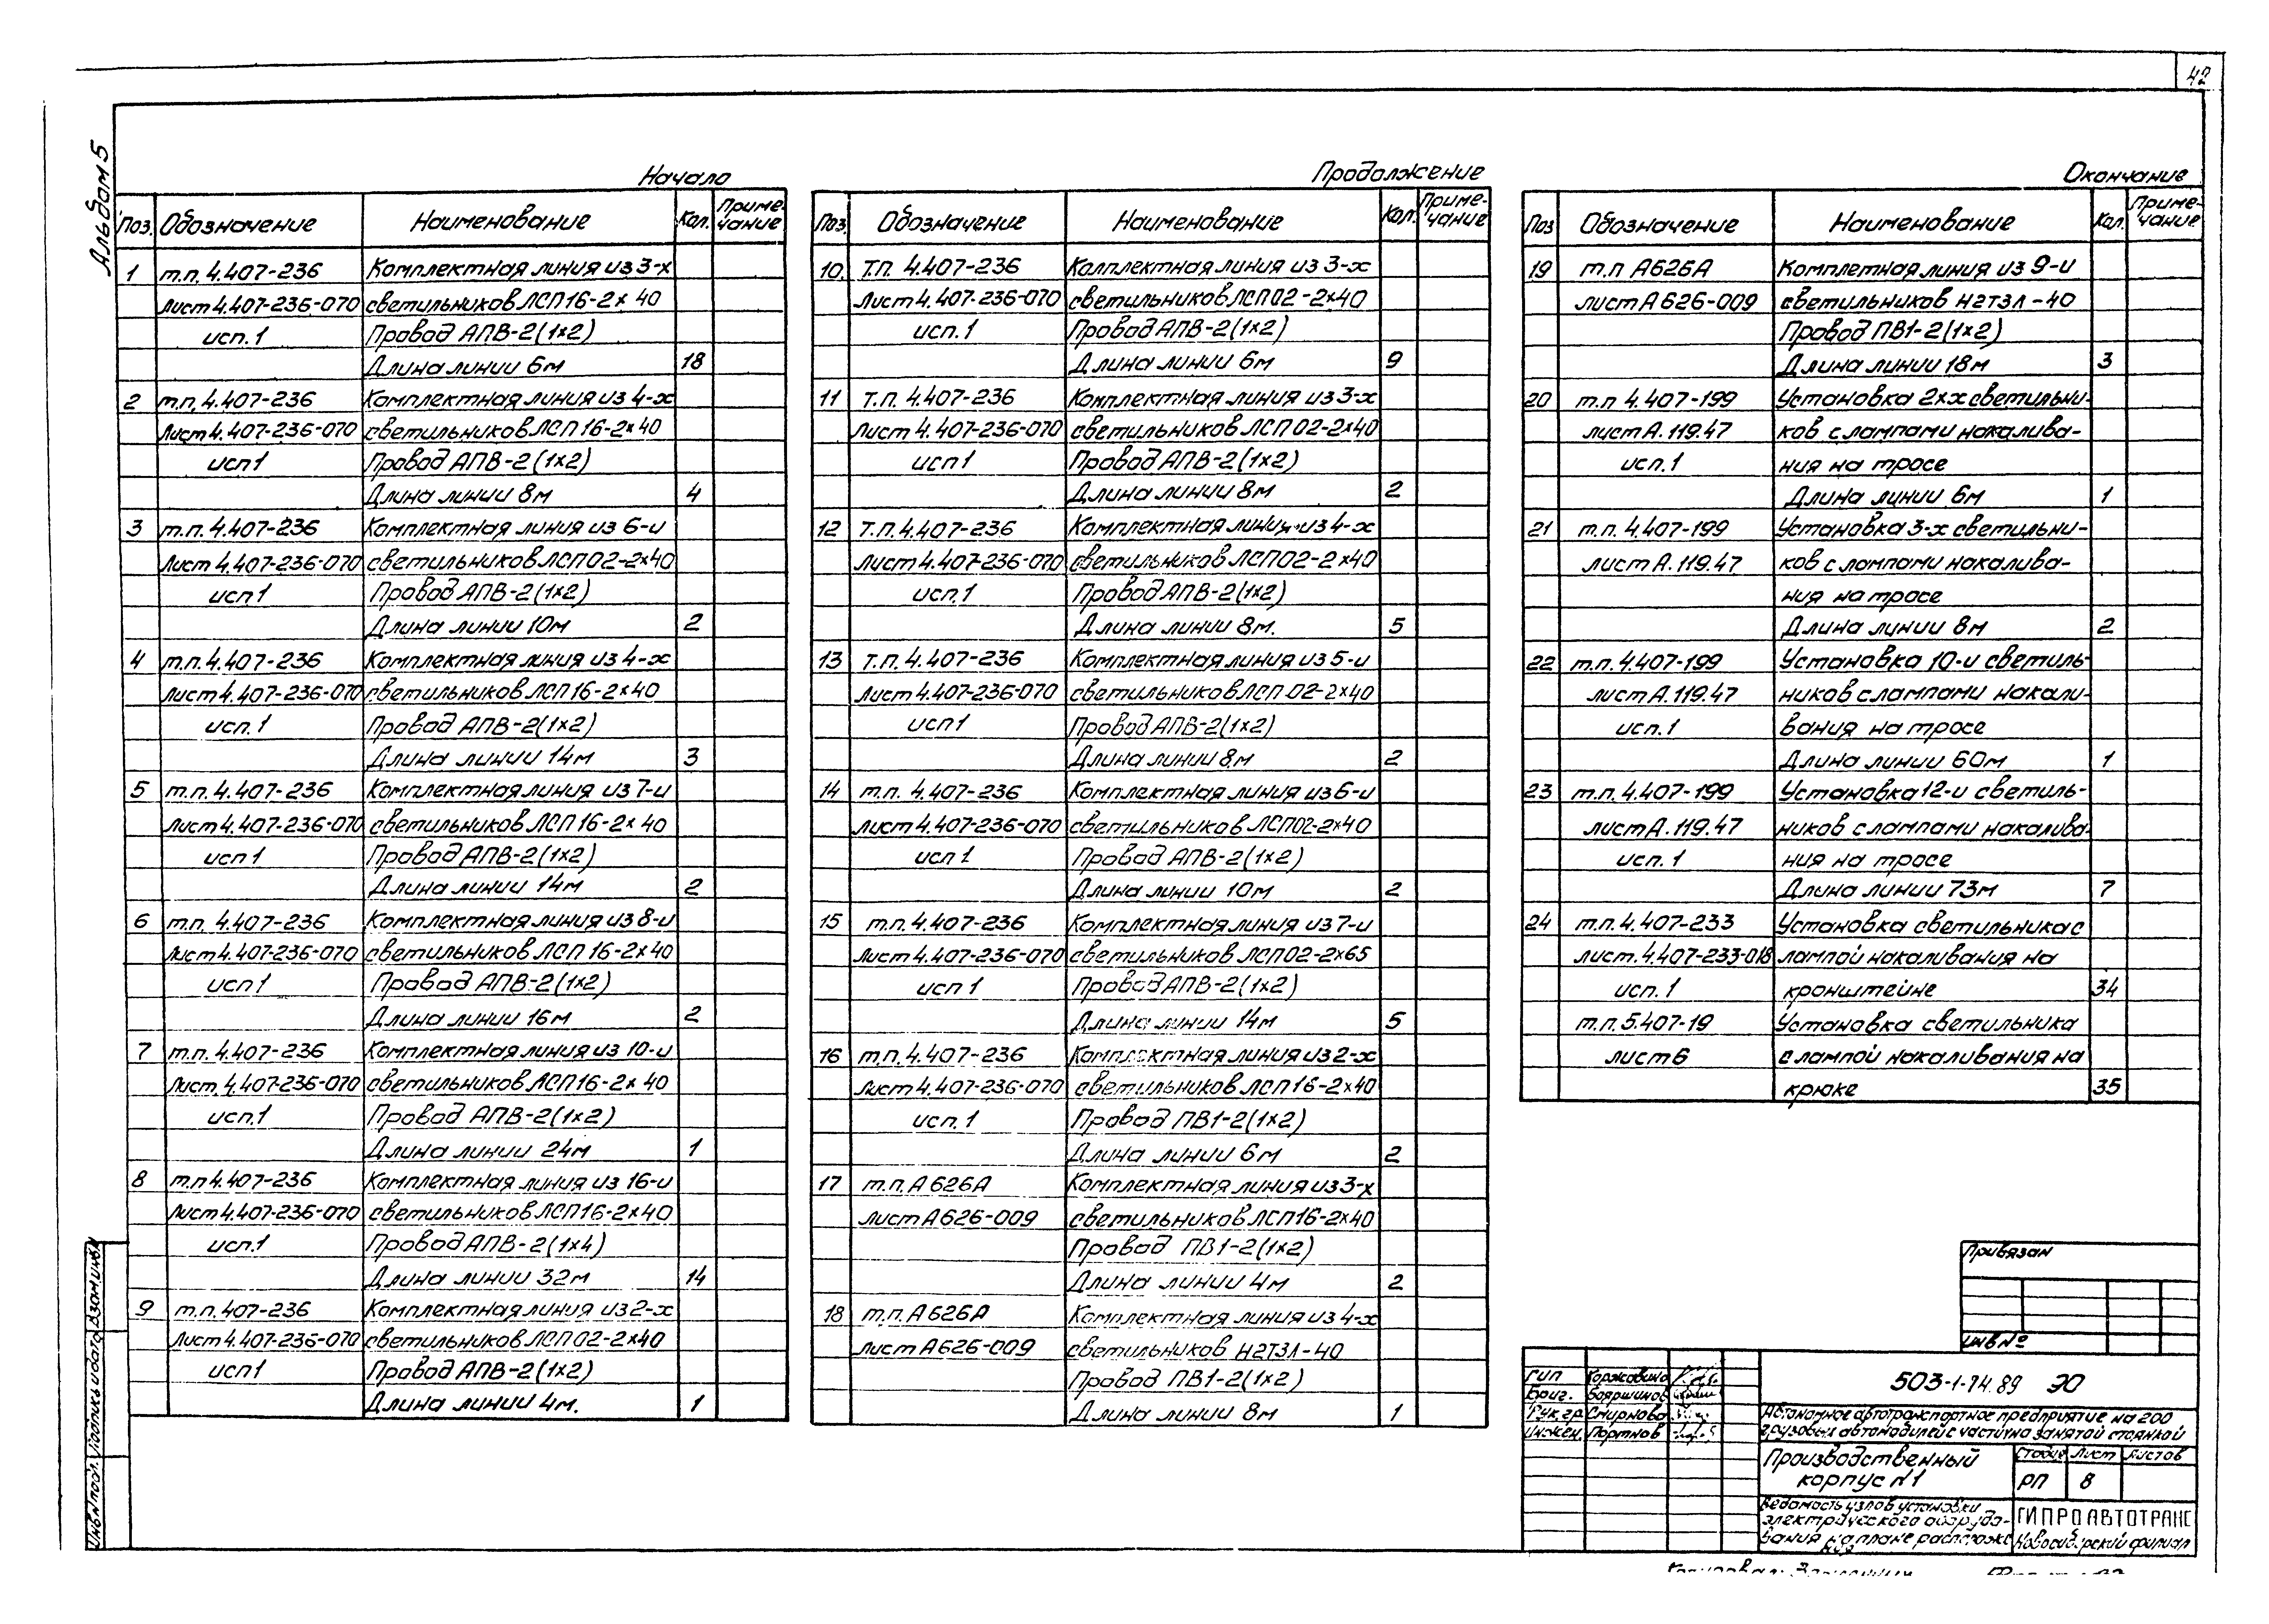 42
Альбом 5
Начало
Поз. Обозначение Наименование Кол. Приме-чание
1 т.п. 4.407-236 Комплектная линия из 3-х
Лист 4.407-236-070 светильников ЛСП 16-2х40
исп.1 Провод АПВ-2(1х2)
Длина линии 6м 18
2 т.п. 4.407-236 Комплектная линия из 4-х
Лист 4.407-236-070 светильников ЛСП 16-2х40
исп1 Провод АПВ-2(1х2)
Длина линии 8м 4
3 т.п. 4.407-236 Комплектная линия из 6-и
Лист 4.407-236-070 светильников ЛСП 02-2х40
исп1 Провод АПВ-2(1х2)
Длина линии 10м 2
4 т.п. 4.407-236 Комплектная линия из 4-х
Лист 4.407-236-070 светильников ЛСП 16-2х40
исп.1 Провод АПВ-2(1х2)
Длина линии 14м 3
5 т.п. 4.407-236 Комплектная линия из 7-и
Лист 4.407-236-070 светильников ЛСП 16-2х40
исп1 Провод АПВ-2(1х2)
Длина линии 14м 2
6 т.п. 4.407-236 Комплектная линия из 8-и
Лист 4.407-236-070 светильников ЛСП 16-2х40
исп1 Провод АПВ-2(1х2)
Длина линии 16м 2
7 т.п. 4.407-236 Комплектная линия из 10-и
Лист. 4.407-236-070 светильников ЛСП 16-2х40
исп.1 Провод АПВ-2(1х2)
Длина линии 24м 1
8 т.п 4.407-236 Комплектная линия из 16-и
Лист 4.407-236-070 светильников ЛСП 16-2х40
исп.1 Провод АПВ-2(1х4)
Длина линии 32м 14
9 т.п. 407-236 Комплектная линия из 2-х
Лист 4.407-236-070 светильников ЛСП 02-2х40
исп1 Провод АПВ-2(1х2)
Длина линии 4м. 1
Продолжение
Поз. Обозначение Наименование Кол. Приме-чание
10. Т.П. 4.407-236 Калплектная линия из 3-х
Лист 4.407-236-070 светильников ЛСП 02-2х40
исп.1 Провод АПВ-2(1х2)
Длина линии 6м 9
11 Т.П. 4.407-236 Комплектная линия из 3-х
Лист 4.407-236-070 светильников ЛСП 02-2х40
исп1 Провод АПВ-2(1х2)
Длина линии 8м 2
12 Т.П. 4.407-236 Комплектная линия из 4-х
Лист 4.407-236-070 светильников ЛСП 02-2х40
исп.1 Провод АПВ-2(1х2)
Длина линии 8м. 5
13 Т.П. 4.407-236 Комплектная линия из 5-и
Лист 4.407-236-070 светильников ЛСП 02-2х40
исп1 Провод АПВ-2(1х2)
Длина линии 8м 2
14 т.п. 4.407-236 Комплектная линия из 6-и
Лист 4.407-236-070 светильников ЛСП02-2х40
исп 1 Провод АПВ-2(1х2)
Длина линии 10м 2
15 т.п. 4.407-236 Комплектная линия из 7-и
Лист 4.407-236-070 светильников ЛСП02-2х65
исп 1 Провод АПВ-2(1х2)
Длина линии 14м 5
16 т.п. 4.407-236 Комплектная линия из 2-х
Лист 4.407-236-070 светильников ЛСП 16-2х40
исп.1 Провод ПВ1-2(1х2)
Длина линии 6м 2
17 т.п. А626А Комплектная линия из 3-х
Лист А626-009 светильников ЛСП 16-2х40
Провод ПВ1-2(1х2)
Длина линии 4м 2
18 т.п. А626А Комплектная линия из 4-х
Лист А626-009 светильников Н2Т3Л-40
Провод ПВ1-2(1х2)
Длина линии 8м 1
Окончание
Поз Обозначение Наименование Кол. Приме-чание
19 т.п А626А Комплетная линия из 9-и
лист А626-009 светильников Н2Т3Л-40
Провод ПВ1-2(1х2)
Длина линии 18м 3
20 т.п 4.407-199 Установка 2хх светильни-
лист А.119.47 ков с лампами накалива-
исп.1 ния на тросе
Длина линии 6м 1
21 т.п. 4.407-199 Установка 3-х светильни-
лист А.119.47 ков с лампами накалива-
ния на тросе
Длина линии 8м 2
22 т.п. 4.407-199 Установка 10-и светиль-
лист А.119.47 ников с лампами накали-
исп.1 вания на тросе
Длина линии 60м 1
23 т.п. 4.407-199 Установка 12-и светиль-
лист А.119.47 ников с лампами накалива-
исп.1 ния на тросе
Длина линии 73м 7
24 т.п. 4.407-233 Установка светильника с
лист. 4.407-233-018 лампой накаливания на
исп.1 кронштейне 34
т.п. 5.407-19 Установка светильника
лист 6 с лампой накаливания на
крюке 35
Привязан
инв №
ГИП Коржавина
Бриг. Бояршинов
Рук.гр Смирнова
Инжен. Портнов
503-1-74.89 ЭО
Автономное автотранспортное предприятие на 200
грузовых автомобилей с частично занятой стоянкой
Производственный
корпус №1
Стадия Лист Листов
РП 8
Ведомость узлов установки
электрического оборудо-
вания на плане расположе
ГИПРОАВТОТРАНС
Новосибирский филиал
Инв N подл. Подпись и дата Взам инв N